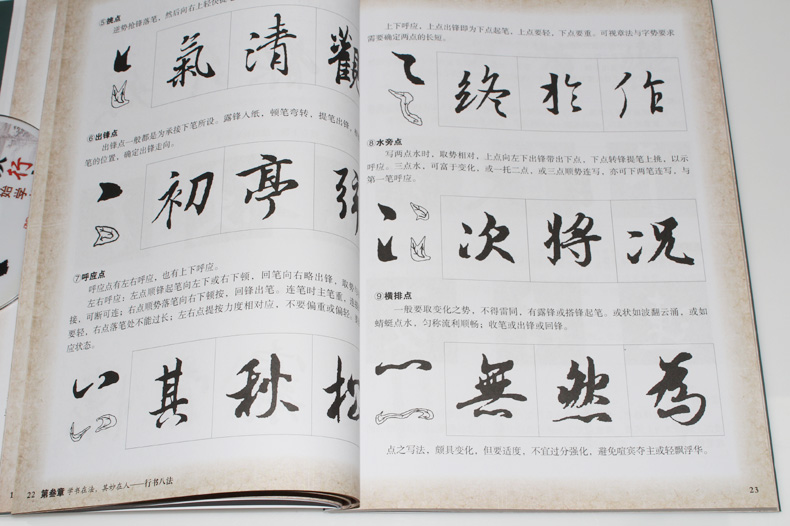 ⑤挑点
逆势抢锋落笔，然后向右上轻快
氣 清 觀
⑥出锋点
出锋点一般都是为承接下笔所设。露锋入纸，顿笔弯转，提笔出锋，
笔的位置，确定出锋走向。
初 亭
⑦呼应点
呼应点有左右呼应，也有上下呼应。
左右呼应：左点顺锋起笔向左下或右下顿，回笔向右略出锋，取势与
接，可断可连；右点顺势落笔向右下顿按，回锋出笔。连笔时主笔重，连
要轻，右点落笔处不能过长；左右点提按力度相对应，不要偏重或偏轻，
应状态。
其 秋 松
22 第叁章 学书在法，其妙在人——行书八法
上下呼应，上点出锋即为下点起笔，上点要轻，下点要重。可视章法与字势要求
需要确定两点的长短。
终 於 作
⑧水旁点
写两点水时，取势相对，上点向左下出锋带出下点，下点转锋提笔上挑，以示
呼应。三点水，可富于变化，或一托二点，或三点顺势连写，亦可下两笔连写，与
第一笔呼应。
次 将 况
⑨横排点
一般要取变化之势，不得雷同，有露锋或搭锋起笔。或状如波翻云涌，或如
蜻蜓点水，匀称流利顺畅；收笔或出锋或回锋。
無 然 為
点之写法，颇具变化，但要适度，不宜过分强化，避免喧宾夺主或轻飘浮华。
23
行
始学